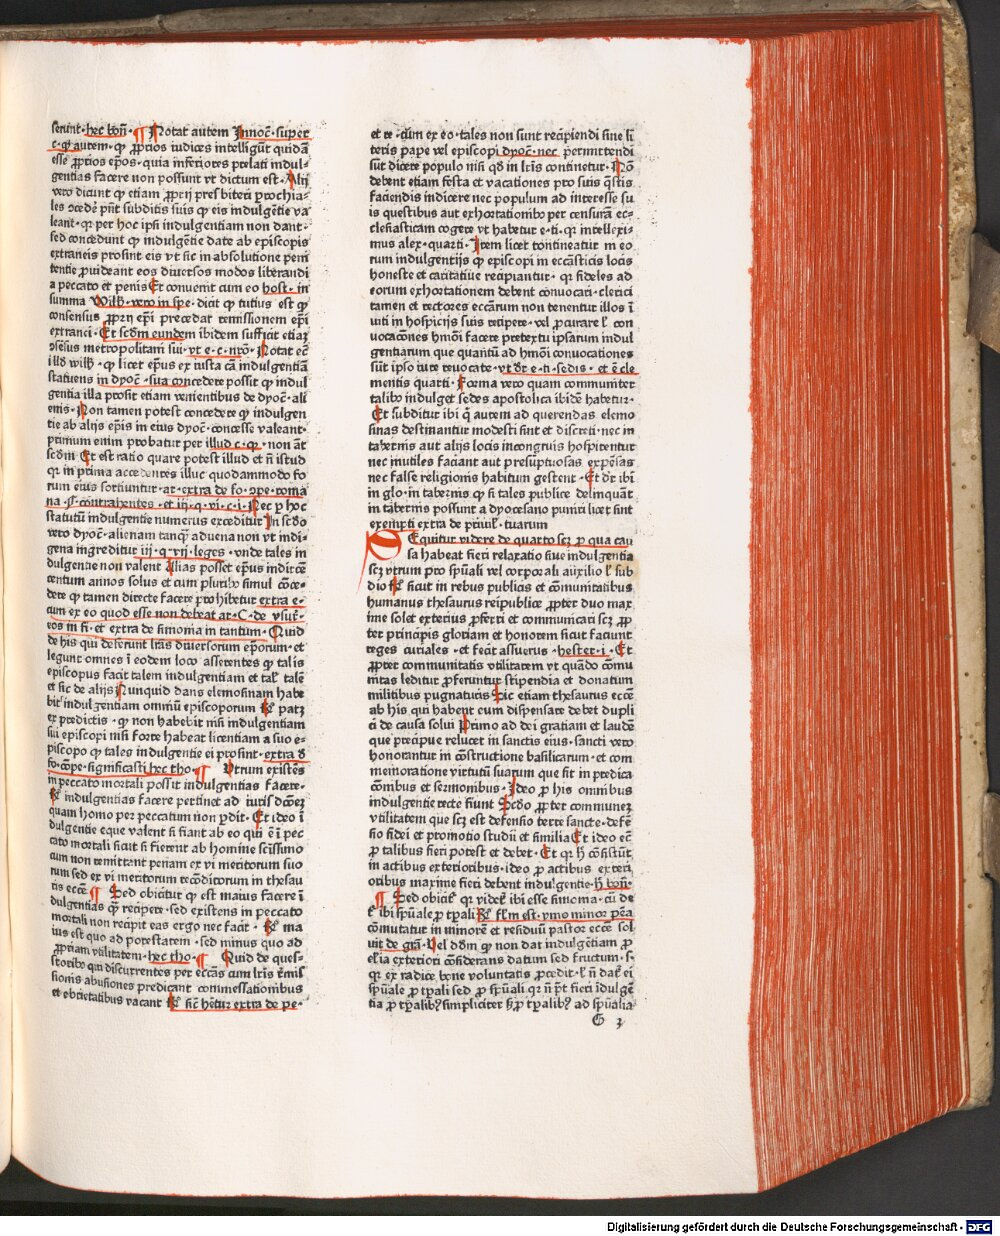 serunt· hec boñ· ¶ Notat autem Innoc̄· super
c· qꝫ autem· qꝫ ꝓprios iudices intelligūt quidā
esse ꝓprios ep̄os· quia inferiores prelati indul⸗
gentias facere non possunt vt dictum est· Alij
vero dicunt qꝫ etiam ꝓprij presbiteri ꝑrochia⸗
les ꝯcedē pn̄t subditis suis qꝫ eis indulgētie va
leant· qꝫ per hoc ipsi indulgentiam non dant·
sed concedunt qꝫ indulgētie date ab episcopis
extraneis prosint eis vt sic in absolutione peni
tentie ꝓuideant eos diuersos modos liberandi
a peccato et penis Et conuenit cum eo host· in
summa Wilh̄· vero in spe· dicit qꝫ tutius est qꝫ
consensus ꝓprij ep̄i precedat remissionem ep̄i
extranei· Et scd̄m eundem ibidem sufficit etiaꝫ
ꝯsensus metropolitani sui· vt e· c· nr̄o· Notat ec̄
illd̄ wilh̄· qꝫ licet ep̄us ex iusta cā indulgentiā
statuens in dyoc̄· sua concedere possit qꝫ indul
gentia illa prosit etiam venientibus de dyoc̄· ali
enis· Non tamen potest concedere qꝫ indulgen
tie ab alijs ep̄is in eius dyoc̄· concesse valeant·
primum enim probatur per illud c· qꝫ· non āt
scd̄m Et est ratio quare potest illud et n̄ istud
qꝛ in prima accedentes illuc quodammodo fo
rum eius sortiuntur· ar· extra de fo· ꝯpe· roma
na· §· contrahentes· et iij· q· vi· c· i· Nec ꝑ hoc
statutū indulgentie numerus exceditur In scd̄o
vero dyoc̄· alienam tanqꝫ aduena non vt indi⸗
gena ingreditur iij· q· vij· leges· vnde tales in
dulgentie non valent Alias posset ep̄us indir̄ cē
centum annos solus et cum pluribꝰ simul cōce⸗
dere qꝫ tamen directe facere ꝓhibetur extra e·
cum ex eo quod esse non debeat ar· C· de vsur̄·
eos in fi· et extra de simonia in tantum· Quid
de his qui deferunt lr̄as diuersorum ep̄orum· et
legunt omnes ī eodem loco asserentes qꝫ talis
episcopus facit talem indulgentiam et tal̄ talē
et sic de alijs Nunquid dans elemosinam habe
bit indulgentiam omniū episcoporum R̄ patꝫ
ex predictis· qꝫ non habebit nisi indulgentiam
sui episcopi nisi forte habeat licentiam a suo e⸗
piscopo qꝫ tales indulgentie ei prosint· extra d̄
fo· cōpe· significasti hec tho· ¶ Vtrum existēs
in peccato mortali possit indulgentias facere·
R̄ indulgentias facere pertinet ad iurisdcōeꝫ
quam homo per peccatum non ꝑdit· Et ideo ī
dulgentie eque valent si fiant ab eo qui ē ī pec
cato mortali sicut si fierent ab homine sc̄issimo
cum non remittant penam ex vi meritorum suo
rum sed ex vi meritorum recōditorum in thesau
ris ecc̄e ¶ Sed obicitur qꝫ est maius facere ī
dulgentias qꝫ recipere· sed existens in peccato
mortali non recipit eas ergo nec facit· R̄ ma
ius est quo ad potestatem· sed minus quo ad
ꝓpriam vtilitatem· hec tho· ¶ Quid de ques⸗
storibꝰ qui discurrentes per ecc̄as cum lr̄is r̄mis
sionis abusiones predicant commessationibus
et ebrietatibus vacant R̄ sic̄ hētur extra de pe·
et re· cum ex eo· tales non sunt recipiendi sine li
teris pape vel episcopi dyoc̄· nec permittendi
sūt dicere populo nisi qd̄ in lr̄is continetur· Nō
debent etiam festa et vacationes pro suis q̄stis
faciendis indicere nec populum ad interesse su
is questibus aut exhortationibꝰ per censurā ec⸗
clesiasticam cogere vt habetur e· ti· qꝫ intellexi⸗
mus alex· quarti· Item licet contineatur in eo
rum indulgentijs qꝫ episcopi in ecc̄asticis locis
honeste et caritatiue recipiantur· qꝫ fideles ad
eorum exhortationem debent conuocari· clerici
tamen et rectores ecc̄arum non tenentur illos ī
uiti in hospicijs suis recipere· vel ꝓcurare l̄ con
uocacōnes hmōi facere pretextu ipsarum indul
gentiarum que quantū ad hmōi conuocationes
sūt ipso iure reuocate· vt dr̄ e· ti· sedis· et ē cle
mentis quarti· Forma vero quam communiter
talibꝰ indulget sedes apostolica ibidē habetur·
Et subditur ibi q̄ autem ad querendas elemo
sinas destinantur modesti sint et discreti· nec in
tabernis aut alijs locis incongruis hospitentur
nec inutiles faciant aut presūptuosas expēsas
nec false religionis habitum gestent· Et dr̄ ibi
in glo· in tabernis qꝫ si tales publice delinquāt
in tabernis possunt a dyocesano puniri licet sint
exempti extra de priuil̄· tuarum
SEquitur videre de quarto scꝫ ꝑ qua cau
sa habeat fieri relaxatio siue indulgentia
scꝫ vtrum pro spūali vel corporali auxilio l̄ sub
dio R̄ sicut in rebus publicis et cōmunitatibus
humanus thesaurus reipublice ꝓpter duo max
ime solet exterius ꝓferri et communicari scꝫ ꝓp
ter principis gloriam et honorem sicut faciunt
reges curiales· et fecit assuerus· hester· i· Et
ꝓpter communitatis vtilitatem vt quādo cōmu
nitas leditur ꝓferuntur stipendia et donatum
militibus pugnaturis Sic etiam thesaurus ecc̄e
ab his qui habent cum dispensare debet dupli
ci de causa solui Primo ad dei gratiam et laudē
que precipue relucet in sanctis eius· sancti vero
honorantur in cōstructione basilicarum· et com
memoratione virtutū suarum que fit in predica
cōnibus et sermonibus· Ideo ꝑ his omnibus
indulgentie recte fiunt Scd̄o ꝓpter communeꝫ
vtilitatem que scꝫ est defensio terre sancte· defē
sio fidei et promotio studii et similia Et ideo ec̄
ꝑ talibus fieri potest et debet· Et qꝛ h̄ cōsistūt
in actibus exterioribus· ideo ꝑ actibus exteri
oribus maxime fieri debent indulgentie· h̄ boñ·
¶ Sed obicit̄ qꝛ videt̄ ibi esse simonia· cū de
t̄ ibi spūale ꝑ tꝑali R̄ fl̄m est· ymo minor pēa
cōmutatur in minorē et residuū pastor ecc̄e sol
uit de grā· Vel dd̄m qꝫ non dat indulgētiam ꝑ
el̄ia exteriori cōsiderans datum sed fructum· s·
qꝛ ex radice bone voluntatis ꝓcedit· l̄ n̄ dat̄ ei
spūale ꝑ tꝑali sed ꝑ spūali qꝛ n̄ pt̄ fieri īdulgē
tia ꝑ tꝑalibꝰ simpliciter sꝫ ꝑ tꝑalibꝰ ad spūalia
G 3
Digitalisierung gefördert durch die Deutsche Forschungsgemeinschaft - DFG